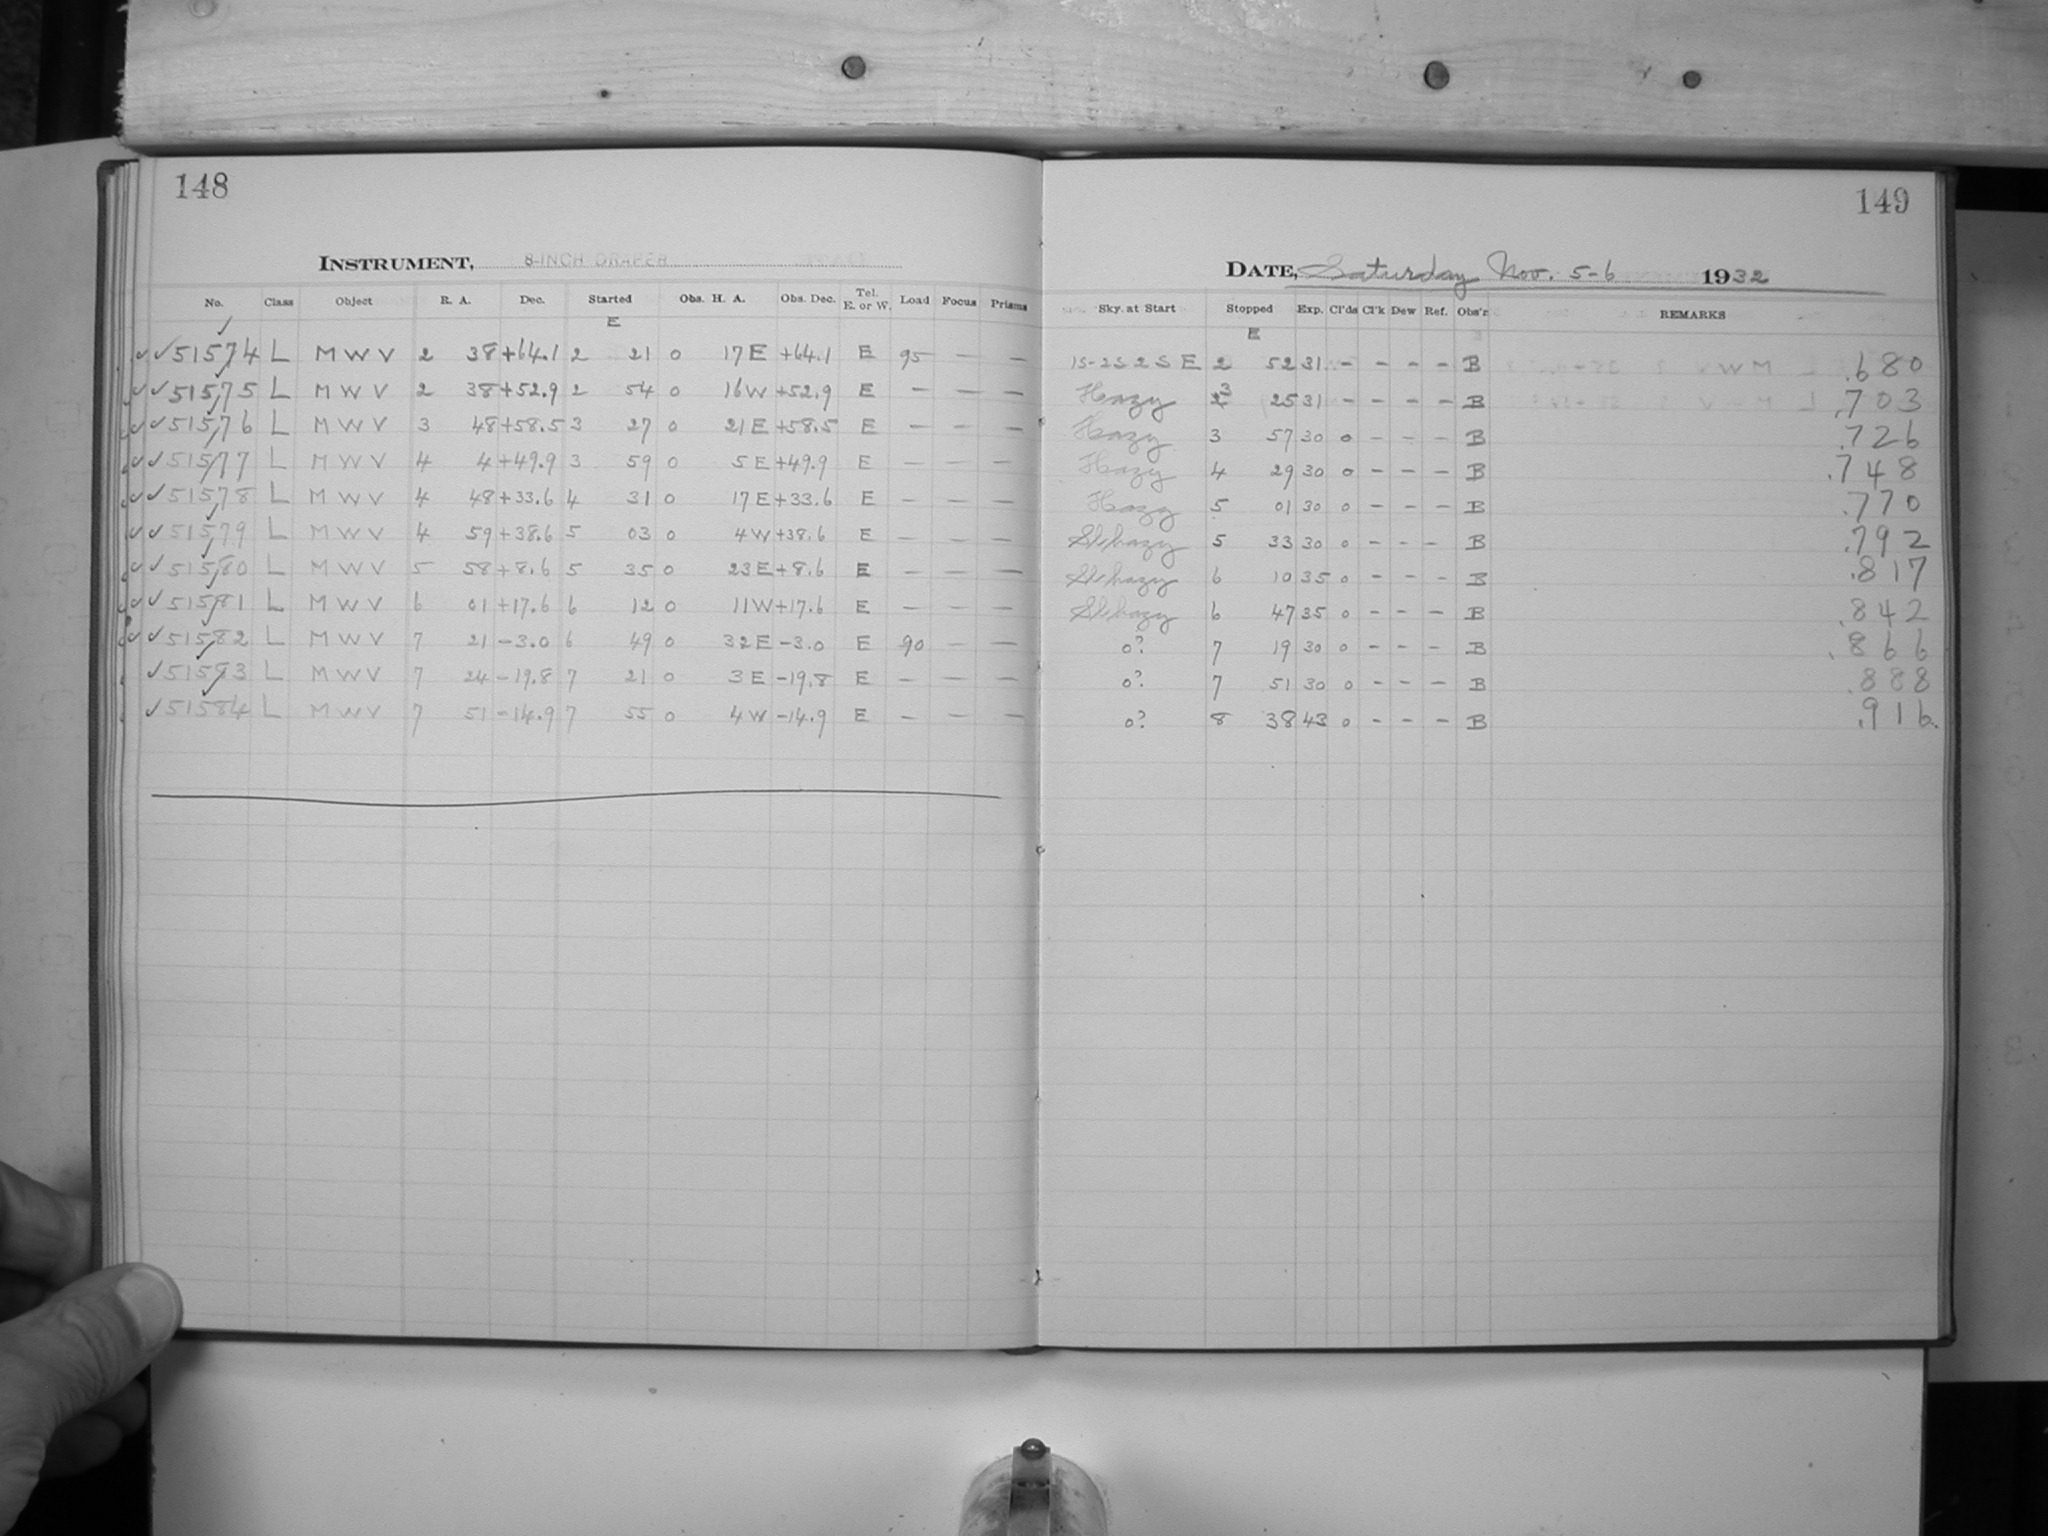 148
INSTRUMENT, 8-INCH DRAPER
No. Class Object R. A. Dec. Started Obs. H. A. Obs. Dec. Tel. E. or W. Load Focus Prisms
E
51574 L M W V 2 38 +64.1 2 21 0 17 E +64.1 E 95 — —
51575 L M W V 2 38 +52.9 2 54 0 16 W +52.9 E — — —
51576 L M W V 3 48 +58.5 3 27 0 21 E +58.5 E — — —
51577 L M W V 4 4 +49.9 3 59 0 5 E +49.9 E — — —
51578 L M W V 4 48 +33.6 4 31 0 17 E +33.6 E — — —
51579 L M W V 4 59 +38.6 5 03 0 4 W +38.6 E — — —
51580 L M W V 5 58 +8.6 5 35 0 23 E +8.6 E — — —
51581 L M W V 6 01 +17.6 6 12 0 11 W +17.6 E — — —
51582 L M W V 7 21 -3.0 6 49 0 32 E -3.0 E 90 — —
51583 L M W V 7 24 -19.8 7 21 0 3 E -19.8 E — — —
51584 L M W V 7 51 -14.9 7 55 0 4 W -14.9 E — — —
149
DATE, Saturday Nov. 5-6 1932
Sky at Start Stopped Exp. Cl'ds Cl'k Dew Ref. Obs'r REMARKS
E
1S-2S 2 S E 2 52 31 - - - - B .680
Hazy 3 25 31 - - - - B .703
Hazy 3 57 30 0 - - - B .726
Hazy 4 29 30 0 - - - B .748
Hazy 5 01 30 0 - - - B .770
Sl. hazy 5 33 30 0 - - - B .792
Sl. hazy 6 10 35 0 - - - B .817
Sl. hazy 6 47 35 0 - - - B .842
0? 7 19 30 0 - - - B .866
0? 7 51 30 0 - - - B .888
0? 8 38 43 0 - - - B .916